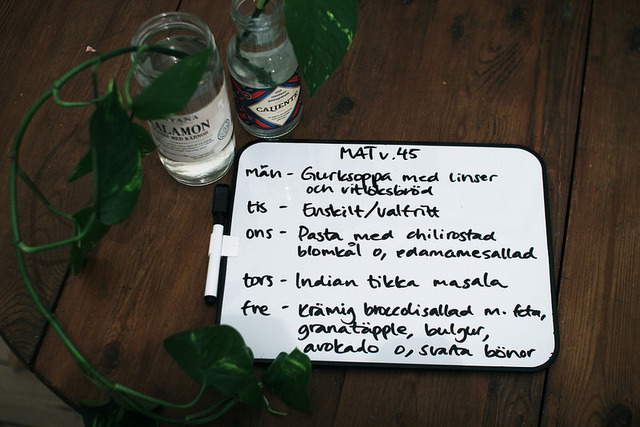 TANA
ALAMON
MED KÄRNOR
CALIENTE
MAT v.45
mån - Gurksoppa med linser
och vitlöksbröd
tis - Enskilt/valfritt
ons - Pasta med chilirostad
blomkål o, edamamesallad
tors - Indian tikka masala
fre - Krämig broccolisallad m. feta,
granatäpple, bulgur,
avokado o, svarta bönor